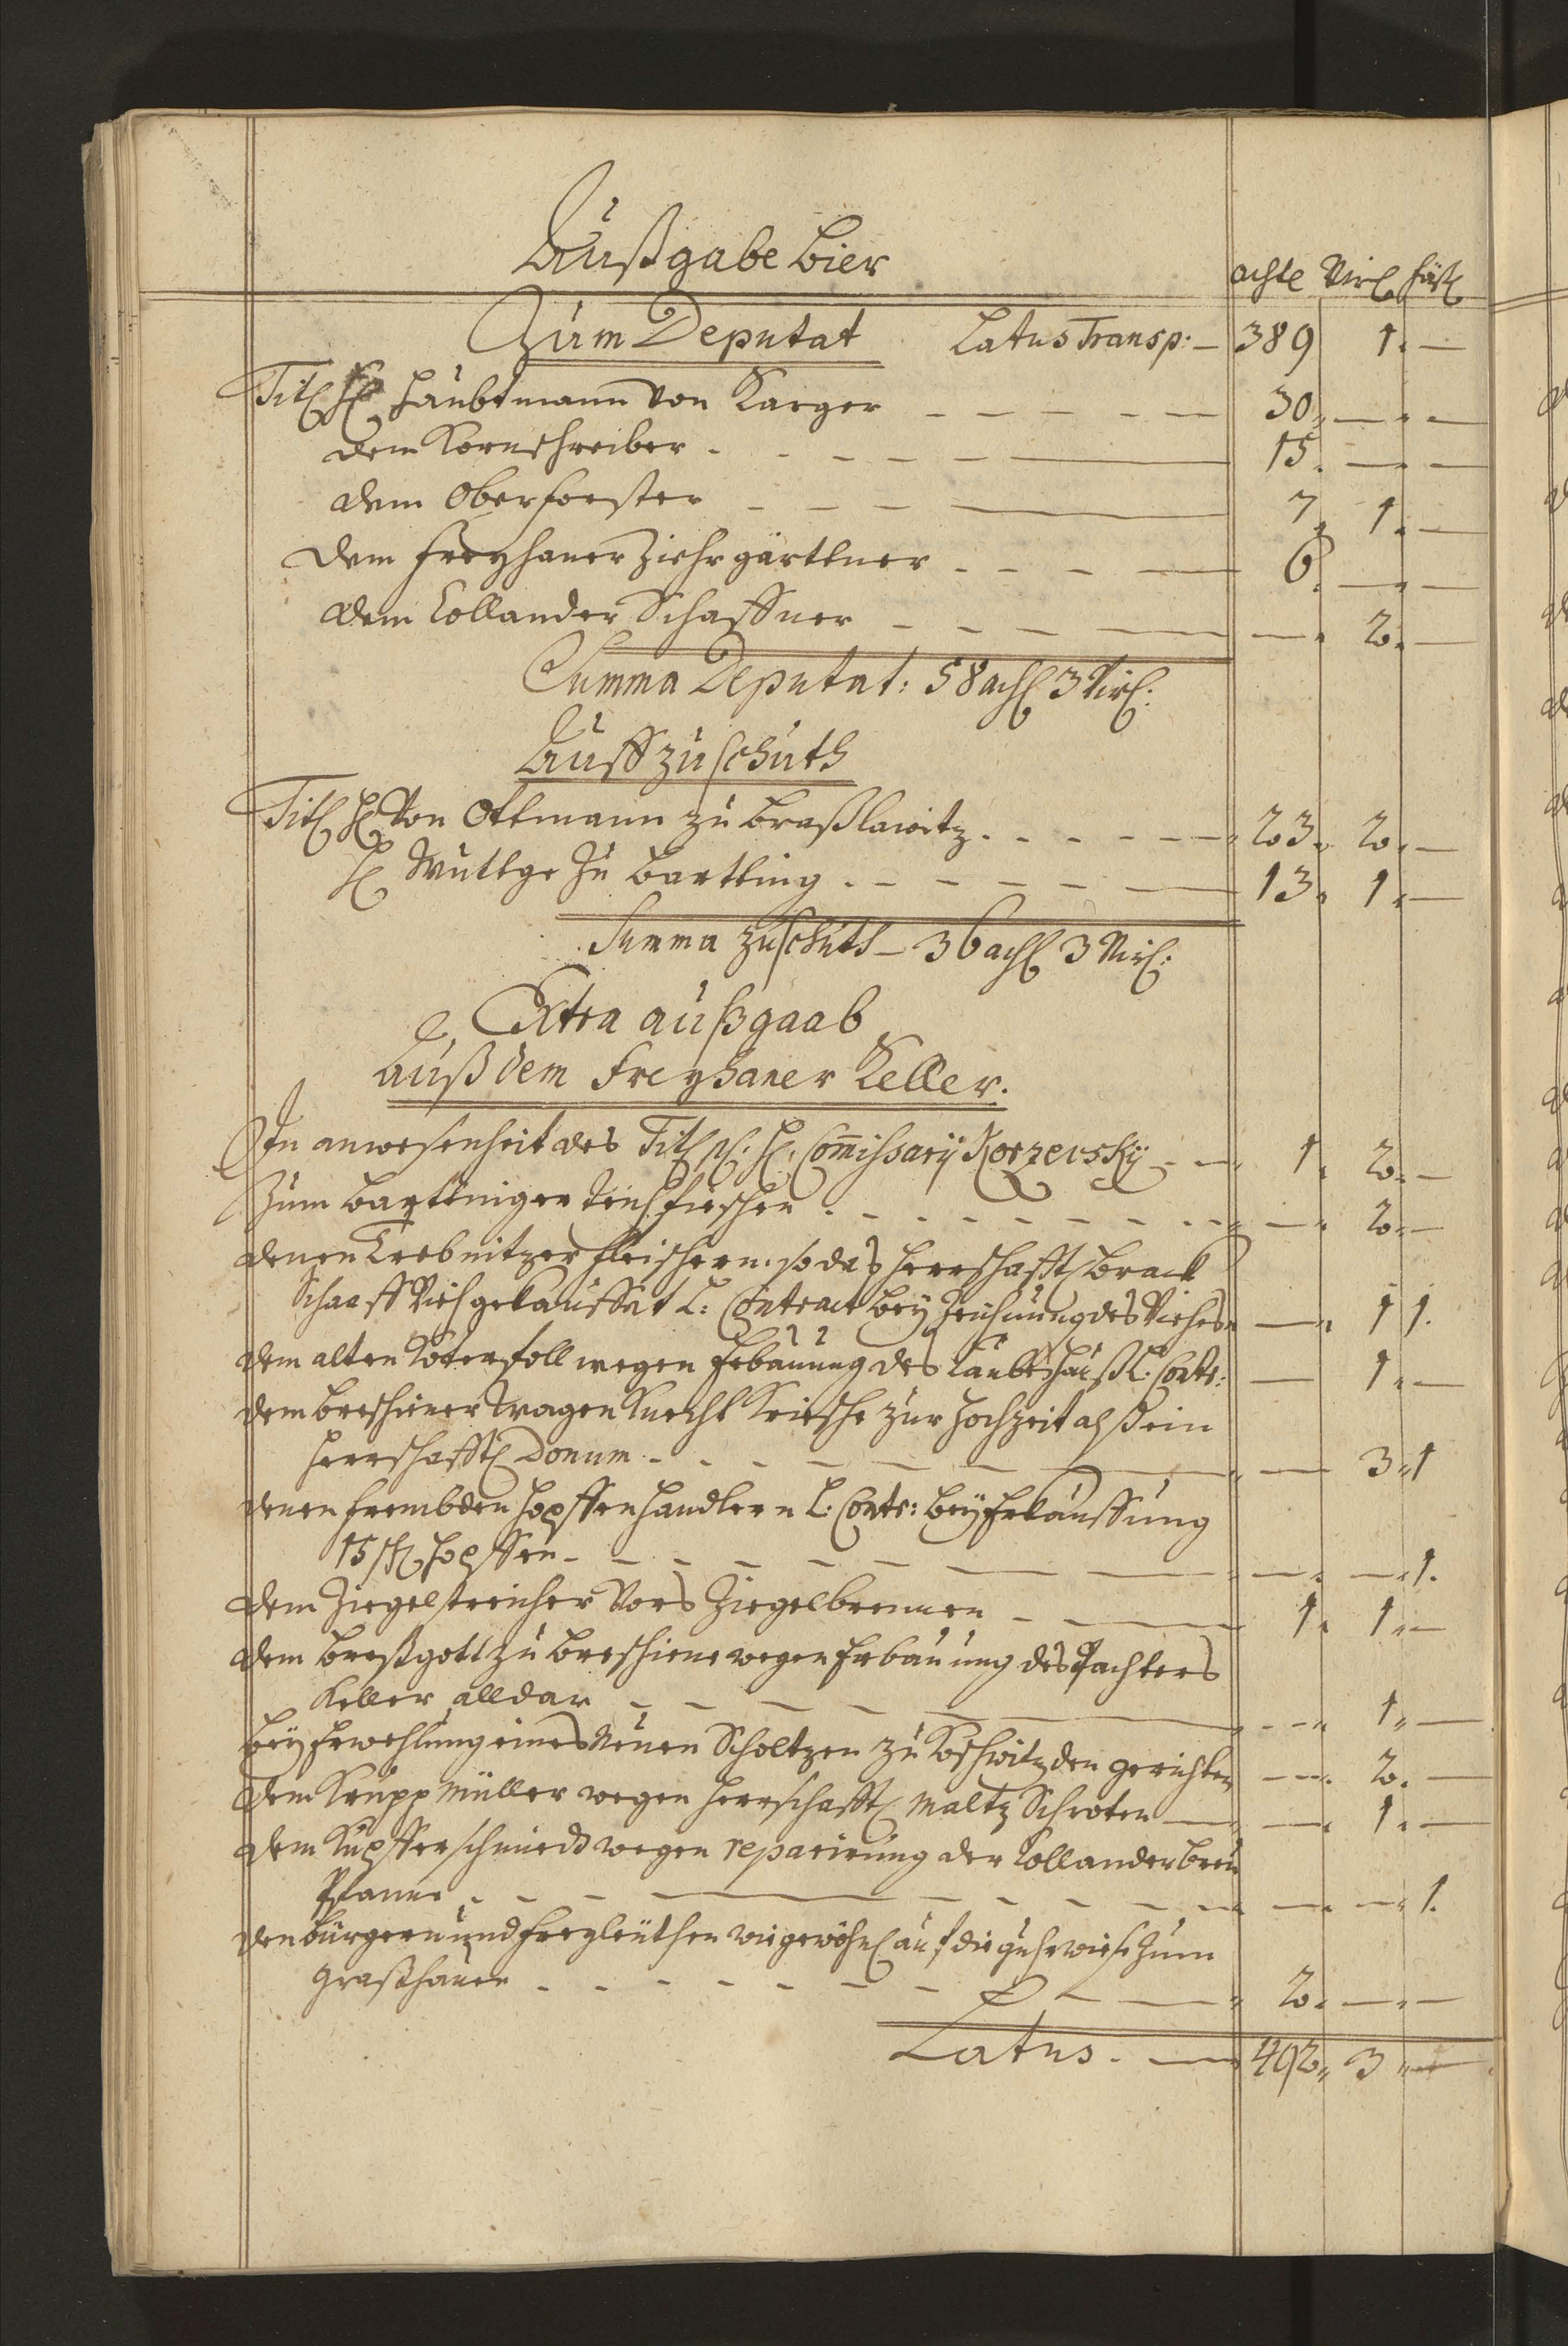 Außgabe Bier
achtl Virl fäßl
Zum Deputat Latus Transp: — 389 1. —
Titl H. Haubtmann von Karger — 30. — —
dem Kornschreiber — 15. — —
dem Oberforster — 7. 1. —
dem Freyhaner Ziehrgärttner — 6. — —
dem Collander Schaffner — — 2. —
Summa Deputat: 58 achl 3 Virl:
Auff Zuschuth
Titl H. Von Ottmann zu Breßlawitz — 23. 2. —
H. Wuttge zu Bartting — 13. 1. —
Summa Zuschuth — 36 achl 3 Virl:
Extra außgaab
Auß dem Freyhaner Keller.
In anwesenheit des Titl H. Commissarÿ Korzewskÿ — 1. 2. —
Zum Barttniger Teichfischen — — 2. —
denen Trebnitzer fleischern, so das herrschafftl brack
Schaaff Vieh gekaufft L: Contract beÿ Zeichnung des Viehes — 1 1.
dem alten Koterfoll wegen Erbauung des Laubeshauß L: Contr: — 1. —
dem Breschiner Wagen Knecht Kriesche zur Hochzeit alß ein
herrschafftl Donum — — 3. 1
denen frembden Hopffenhandlern L: Contr: beÿ Erkauffung
15 schl Hopffen — — — 1.
dem Ziegelstreicher Vors Ziegelbrennen — 1. 1. —
dem Breßgott zu Breschine wegen Erbauung des Pachters
Keller alldar — — 1. —
beÿ Erwehlung eines Neuen Scholtzen zu Koschwitz den gerichten — 2. —
dem Krupp Müller wegen herrschafftl Maltz Schroten — — 1. —
dem Kupfferschmiedt wegen reparirung der Collander Breu
Pfanne — — — 1.
den Bürgern und Freyleuthen wie gewöhnl auf die Wiese zum
Graßhauen — 2. — —
Latus. — 492. 3 —